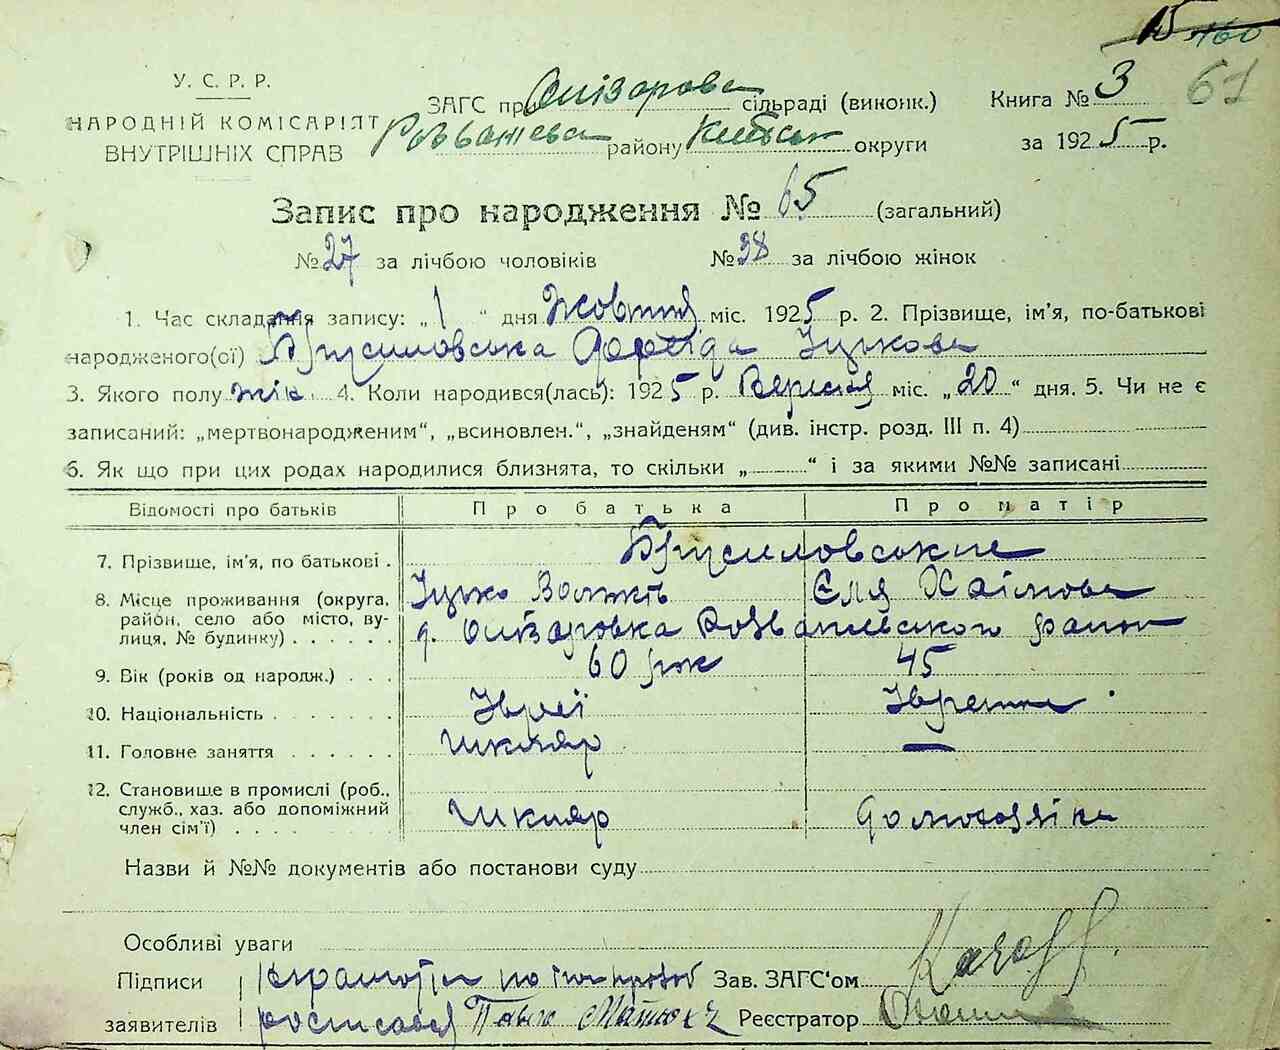 15 160
61
У. С. Р. Р.
НАРОДНІЙ КОМІСАРІЯТ
ВНУТРІШНІХ СПРАВ
ЗАГС при сільраді (виконк.) Книга № 3
району округи за 1925 р.
Запис про народження № 65 (загальний)
№ 27 за лічбою чоловіків № 38 за лічбою жінок
1. Час складання запису: „1“ дня Жовтня міс. 1925 р. 2. Прізвище, ім'я, по-батькові
народженого(ої) Брусиловська Іцькова
3. Якого полу жін. 4. Коли народився(лась): 1925 р. Вересня міс. „20“ дня. 5. Чи не є
записаний: „мертвонародженим“, „всиновлен.“, „знайденям“ (див. інстр. розд. III п. 4)
6. Як що при цих родах народилися близнята, то скільки „ “ і за якими №№ записані
Відомості про батьків Про батька Про матір
7. Прізвище, ім'я, по батькові . Брусиловські
Іцько Єля Хаімова
8. Місце проживання (округа, район, село або місто, вулиця, № будинку) . . . . . .
9. Вік (років од народж.) . . . 60 45
10. Національність . . . . . . . Іврей Іврейка
11. Головне заняття . . . . . . шкляр —
12. Становище в промислі (роб., служб., хаз. або допоміжний член сім'ї) . . . . . шкляр домохазяйка
Назви й №№ документів або постанови суду
Особливі уваги
Підписи заявителів
Зав. ЗАГС'ом
росписався Павло Реєстратор